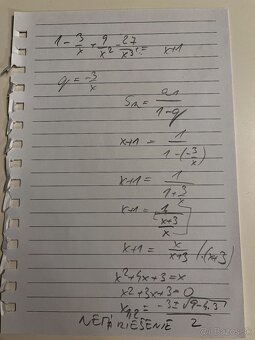 1 - 3/x + 9/x² - 27/x³ .. = x+1
q = -3/x
Sn = a1/(1-q)
x+1 = 1/(1-(-3/x))
x+1 = 1/(1+3/x)
x+1 = 1/((x+3)/x)
x+1 = x/(x+3) /·(x+3)
x²+4x+3=x
x²+3x+3=0
x1,2 = (-3±√9-4.3)/2
NEMÁ RIEŠENIE